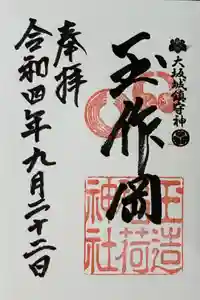 大坂城鎮守神
玉作岡
奉拝
令和四年九月二十二日
玉造稲荷神社